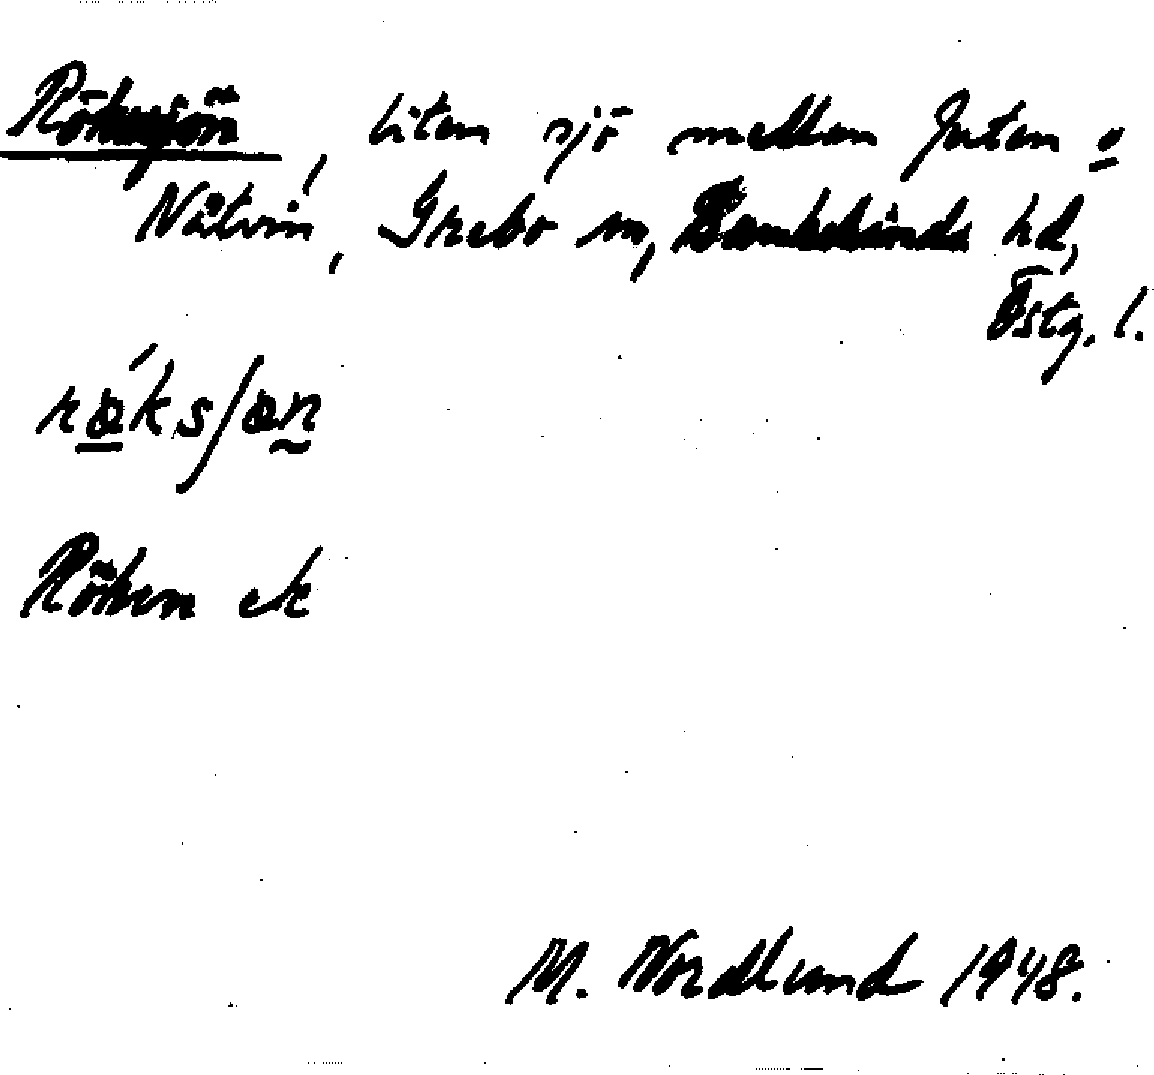 Röksjön, liten sjö mellan Juten o
Nätvin, Grebo sn, Bankekinds hd,
Östg. l.
Röken ek
M. Nordlund 1948.